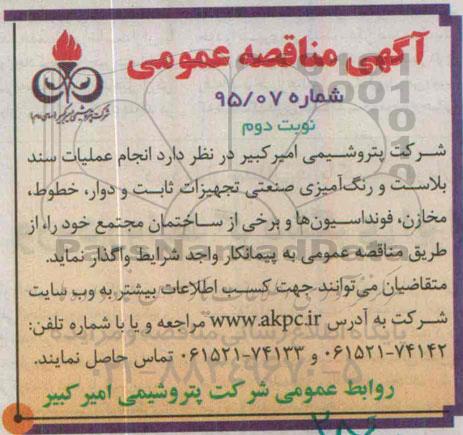 آگهی مناقصه عمومی
شماره ۹۵/۰۷
نوبت دوم
شرکت پتروشیمی امیرکبیر در نظر دارد انجام عملیات سند
بلاست و رنگ‌آمیزی صنعتی تجهیزات ثابت و دوار، خطوط،
مخازن، فونداسیون‌ها و برخی از ساختمان مجتمع خود را، از
طریق مناقصه عمومی به پیمانکار واجد شرایط واگذار نماید.
متقاضیان می‌توانند جهت کسب اطلاعات بیشتر به وب سایت
شرکت به آدرس www.akpc.ir مراجعه و یا با شماره تلفن:
۰۶۱۵۲۱-۷۴۱۴۲ و ۰۶۱۵۲۱-۷۴۱۳۳ تماس حاصل نمایند.
روابط عمومی شرکت پتروشیمی امیر کبیر
ParsNamadData
۰۲۱-۸۸۳۴۹۶۷۰-۵